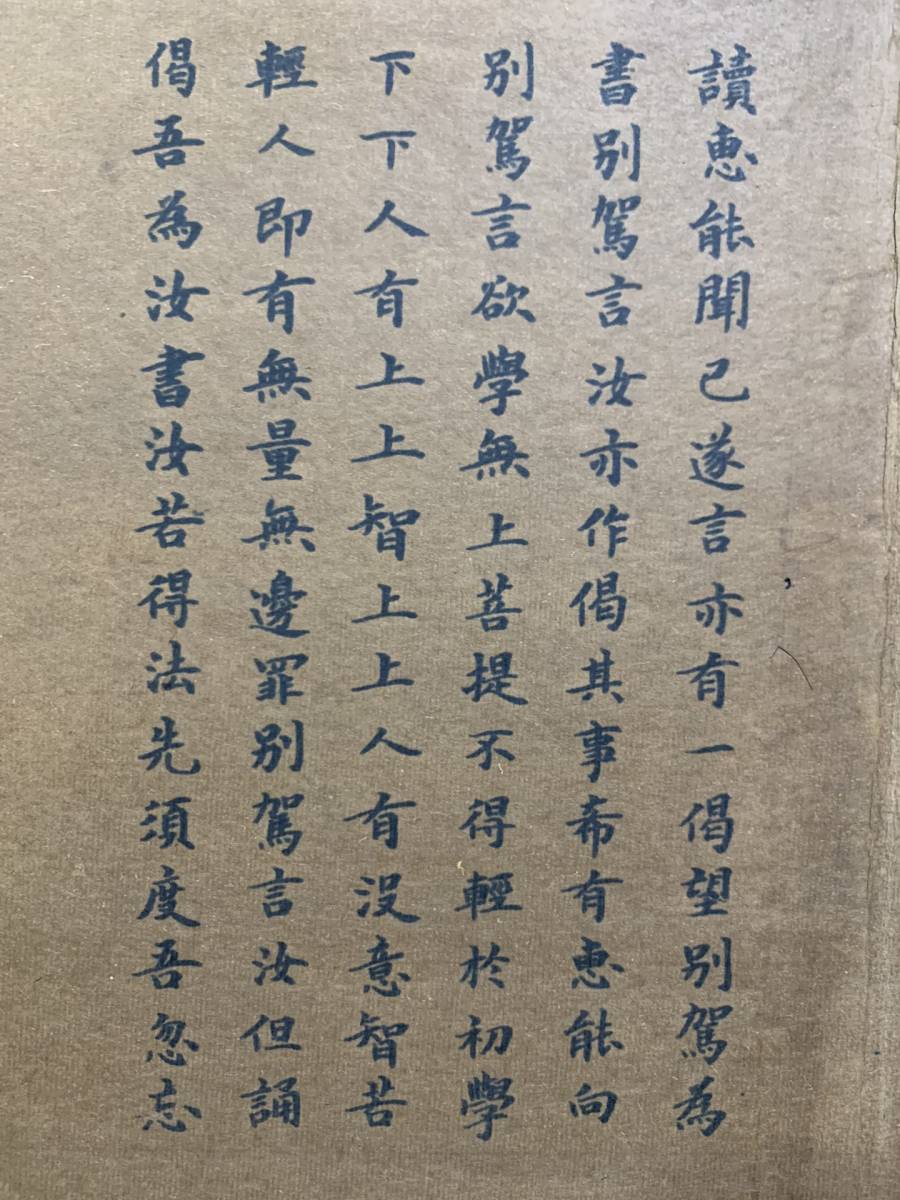 讀惠能聞已遂言亦有一偈望別駕為
書別駕言汝亦作偈其事希有惠能向
別駕言欲學無上菩提不得輕於初學
下下人有上上智上上人有沒意智若
輕人即有無量無邊罪別駕言汝但誦
偈吾為汝書汝若得法先須度吾忽忘